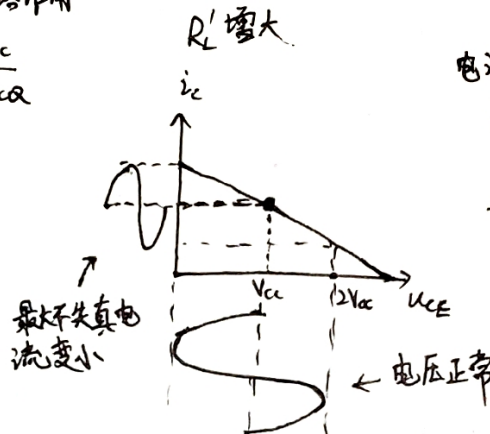 R'L 增大
c
cQ
ic
电
VCC
2VCC
uCE
最大不失真电
流变小
← 电压正常